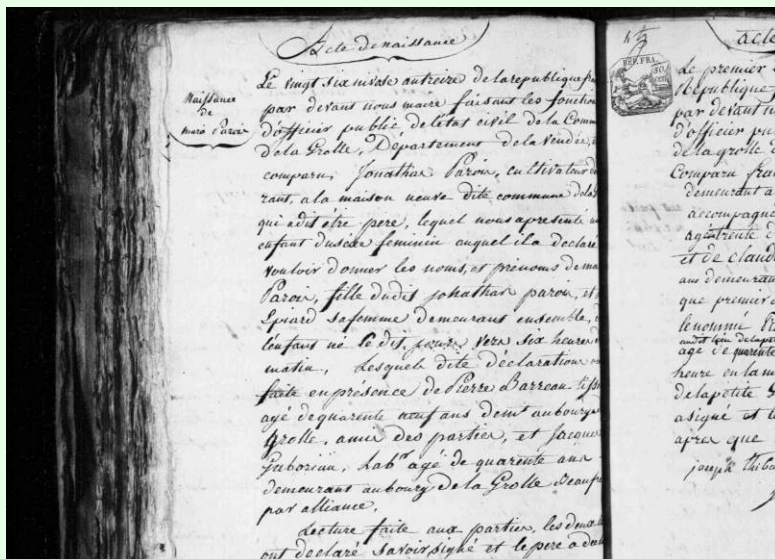 Acte de naissance
Naissance
de
marie Paroin
Le vingt six nivose an treize de la republique fra
par devant nous maire faisant les fonction
d'officier public de l'état civil de la Comm
de la Grolle, Département de la Vendée,
comparu, Jonathas Paroin, cultivateur de
rant, a la maison neuve dite commune dela
qui a dit etre pere, lequel nous apresenté un
enfant du sexe feminin auquel il a declaré
vouloir donner les noms, et prénoms de ma
Paroin, fille dudit johathas paroin, et
Epiard sa femme demeurant ensemble,
l'enfant né le dit jour vers six heures
matin, Lesquels dite déclaration
faite en présence de Pierre Barreau tisse
agé de quarente neuf ans demt au bourg
Grolle, amis des parties, et Jacques
labr agé de quarente ans
demeurant au bourg de la Grolle Beaufre
par alliance.
Lecture faite aux parties, les deux
ont declaré savoir signé et le pere a decl
acte
REP. FRA.
Le premier
Republique
par devant n
d'officier pu
de la grolle d
Comparu fran
demeurant a
accompagne
agé trente
et de claud
ans demeuran
que premier
le nommé
agé de quarente
heure en la m
de la petite
a signé et l
apres que
joseph Thiba